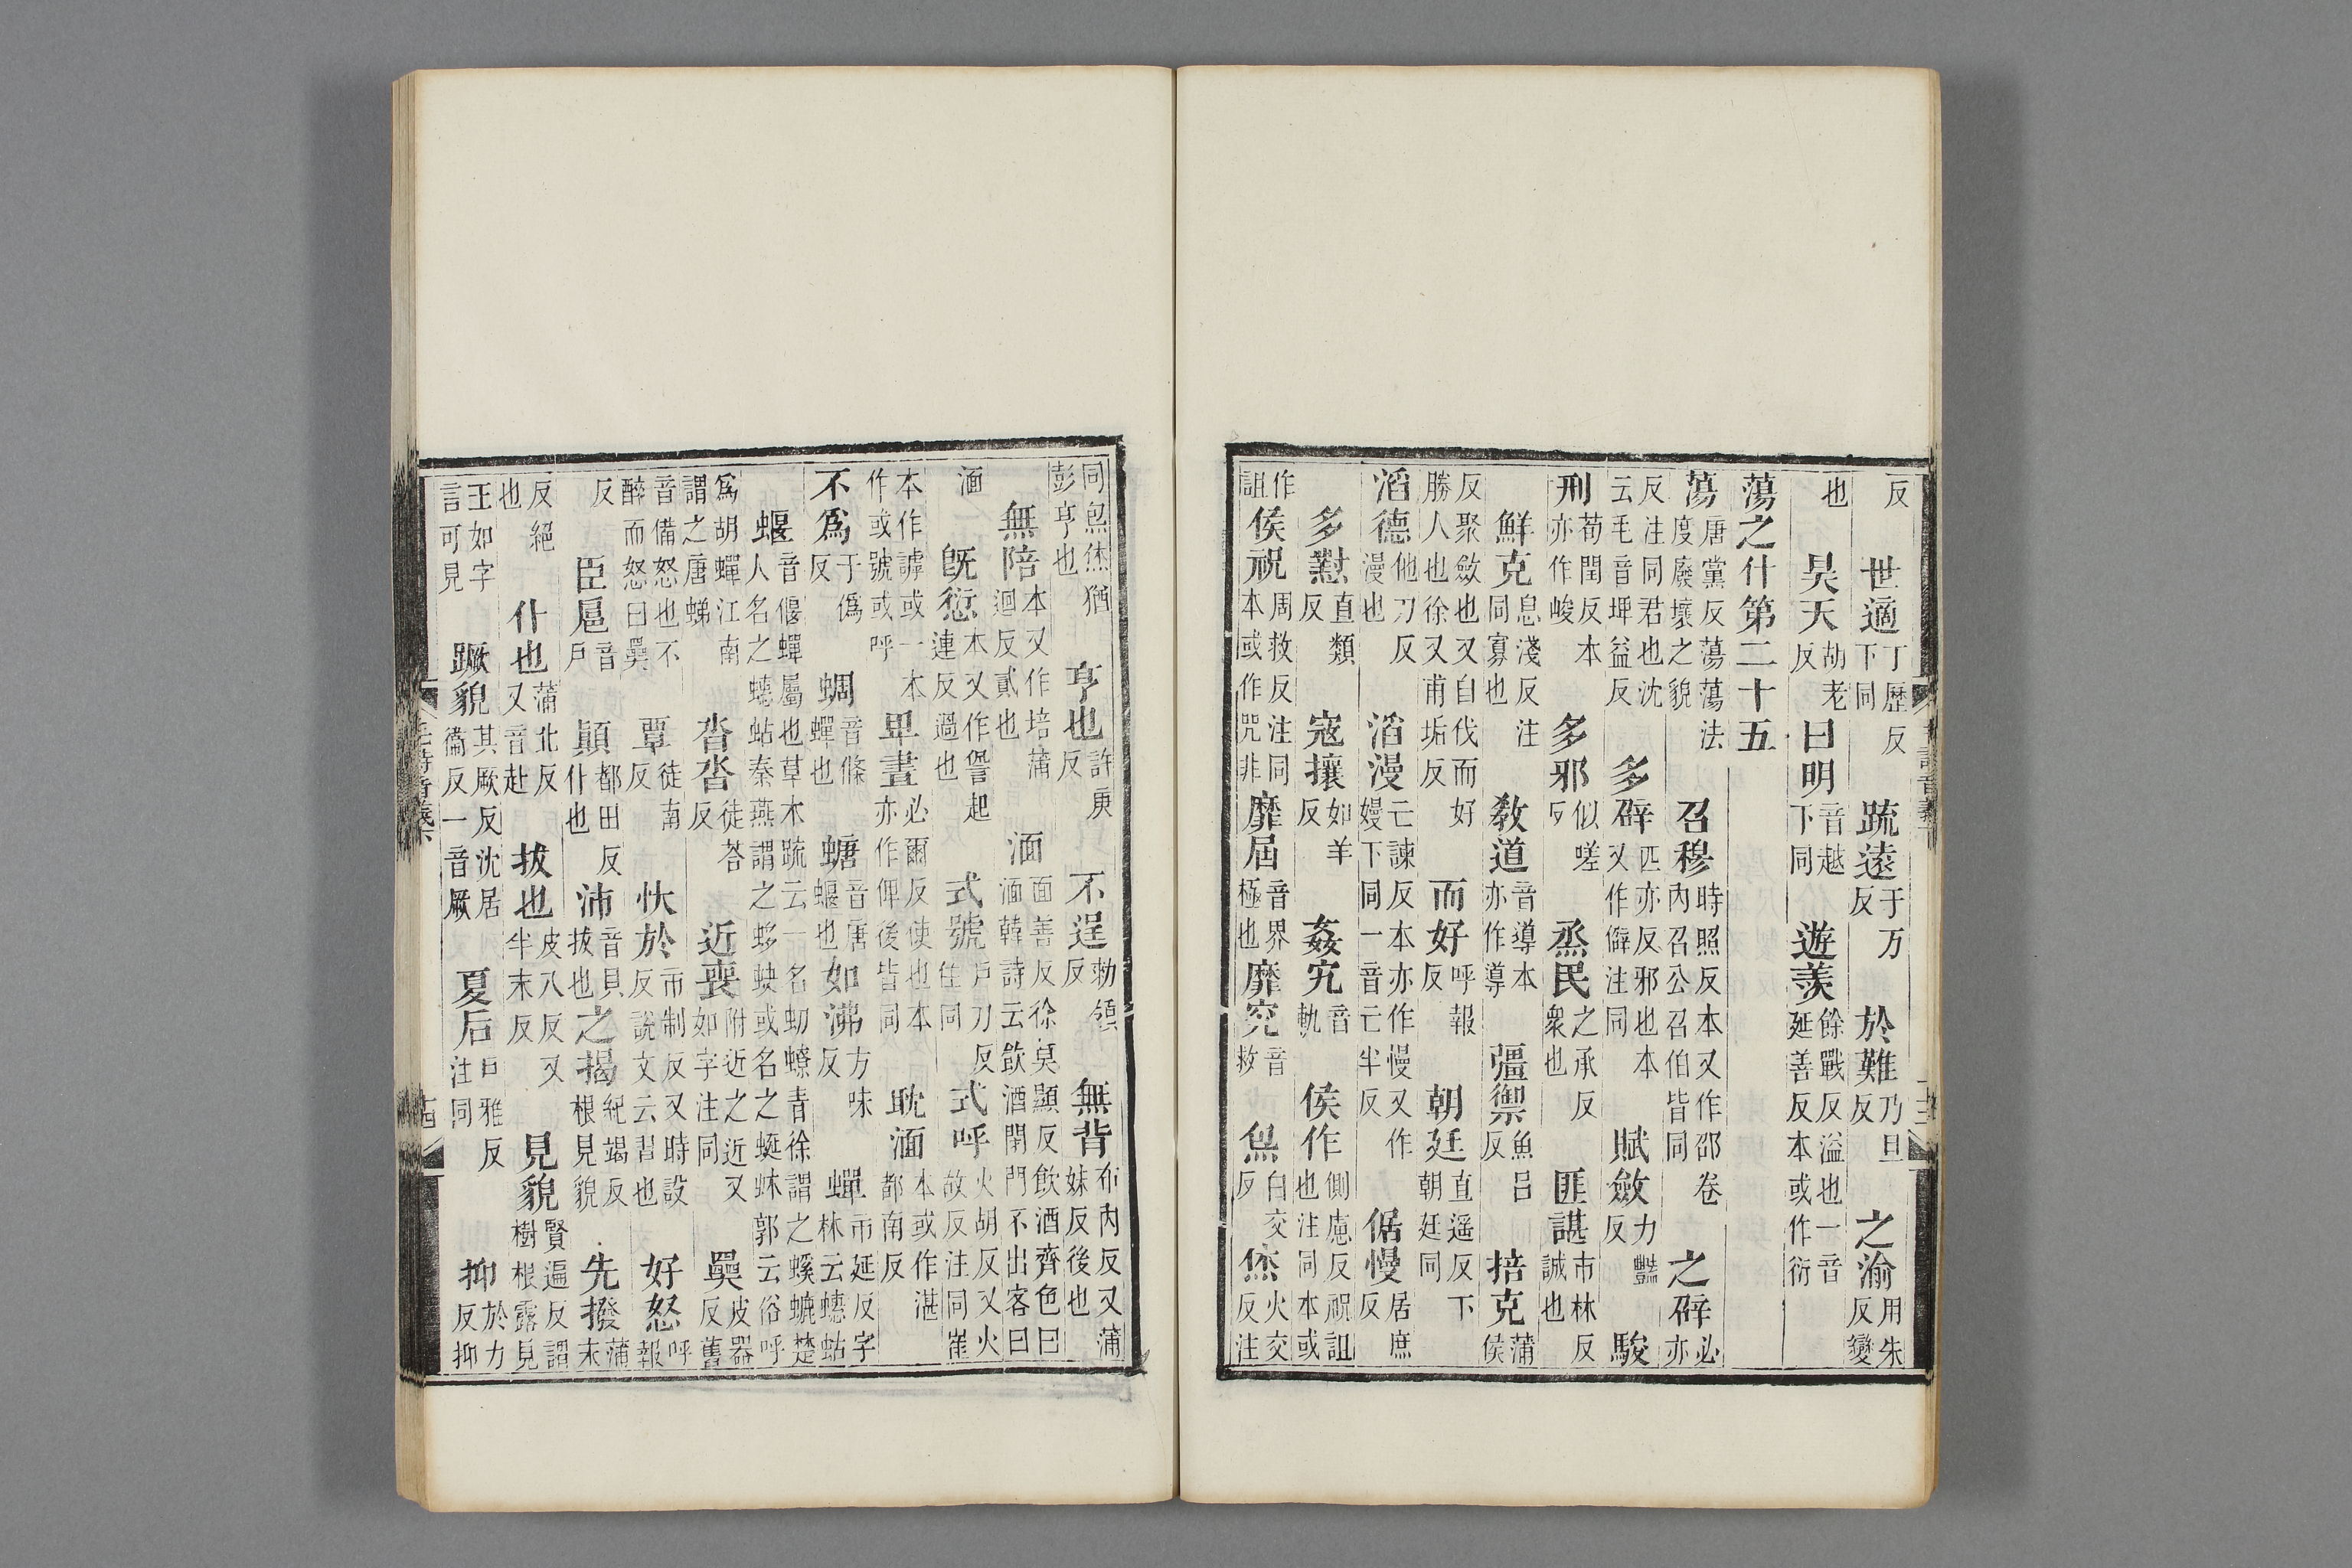 反 世適丁歷反下同 疏遠于万反 於難乃旦反 之渝用朱反變
也 昊天胡老反 曰明音越下同 遊羡餘戰反溢也一音延善反本或作衍
蕩之什第二十五
蕩唐黨反蕩蕩法度廢壞之貌 召穆時照反本又作邵卷內召公召伯皆同 之辟必亦
反注同君也沈云毛音婢益反 多辟匹亦反邪也本又作僻注同 賦斂力豔反 駿
刑荀閏反本亦作峻 多邪似嗟反 烝民之承反衆也 匪諶市林反誠也
鮮克息淺反注同寡也 教道音導本亦作導 彊禦魚呂反 掊克蒲侯
反聚斂也又自伐而好勝人也徐又甫垢反 而好呼報反 朝廷直遥反下朝廷同
滔德他刀反漫也 滔漫亡諫反本亦作慢又作嫚下同一音亡半反 倨慢居庶反
多懟直類反 寇攘如羊反 姦宄音軌 侯作側慮反祝詛也注同本或
作詛 侯祝周救反注同本或作咒非 靡屆音界極也 靡究音救 炰白交反 烋火交反注
同炰烋猶彭亨也 亨也許庚反 不逞勑領反 無背布內反又蒲妹反後也
無陪本又作培蒲迴反貳也 湎面善反徐莫顯反飲酒齊色曰湎韓詩云飲酒閉門不出客曰
湎 旣愆本又作諐起連反過也 式號戶刀反注同 式呼火胡反又火故反注同崔
本作謼或一本作或號或呼 卑晝必爾反使也本亦作俾後皆同 耽湎本或作湛都南反
不爲于僞反 蜩音條蟬也 螗音唐蝘也 如沸方味反 蟬市延反字林云蟪蛄
蝘音偃蟬屬也草木疏云一名虭蟟青徐謂之螇螰楚人名之蟪蛄秦燕謂之蛥蚗或名之蜓蚞郭云俗呼
爲胡蟬江南謂之唐蛦 沓沓徒荅反 近喪附近之近又如字注同 奰皮器反舊
音備怒也不醉而怒曰奰 覃徒南反 忕於市制反又時設反說文云習也 好怒呼報
反 臣扈音戶 顚都田反什也 沛音貝拔也 之揭紀竭反根見貌 先撥蒲末
反絕也 什也蒲北反又音赴 拔也皮八反又半末反 見貌賢遍反謂樹根露見
王如字言可見 蹶貌其厥反沈居衞反一音厥 夏后戶雅反注同 抑於力反抑